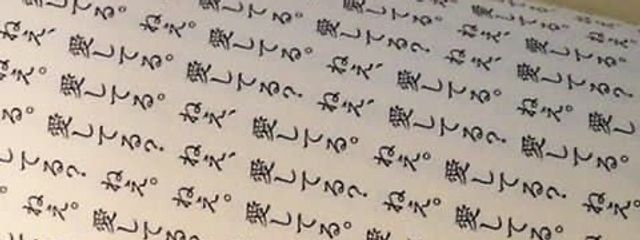 愛してる
愛してる。ねえ、愛してる。
愛してる。愛してる?ねえ、愛してる?
ねえ。愛してる。ねえ、愛してる。ねえ。愛し
ねえ、愛してる。愛してる?ねえ、愛してる?愛してる。
え。愛してる。ねえ、愛してる。ねえ。愛してる?ねえ。
る。愛してる?ねえ、愛してる?ねえ。愛してる。
してる?ねえ。ねえ。愛してる。愛
。ねえ。愛してる